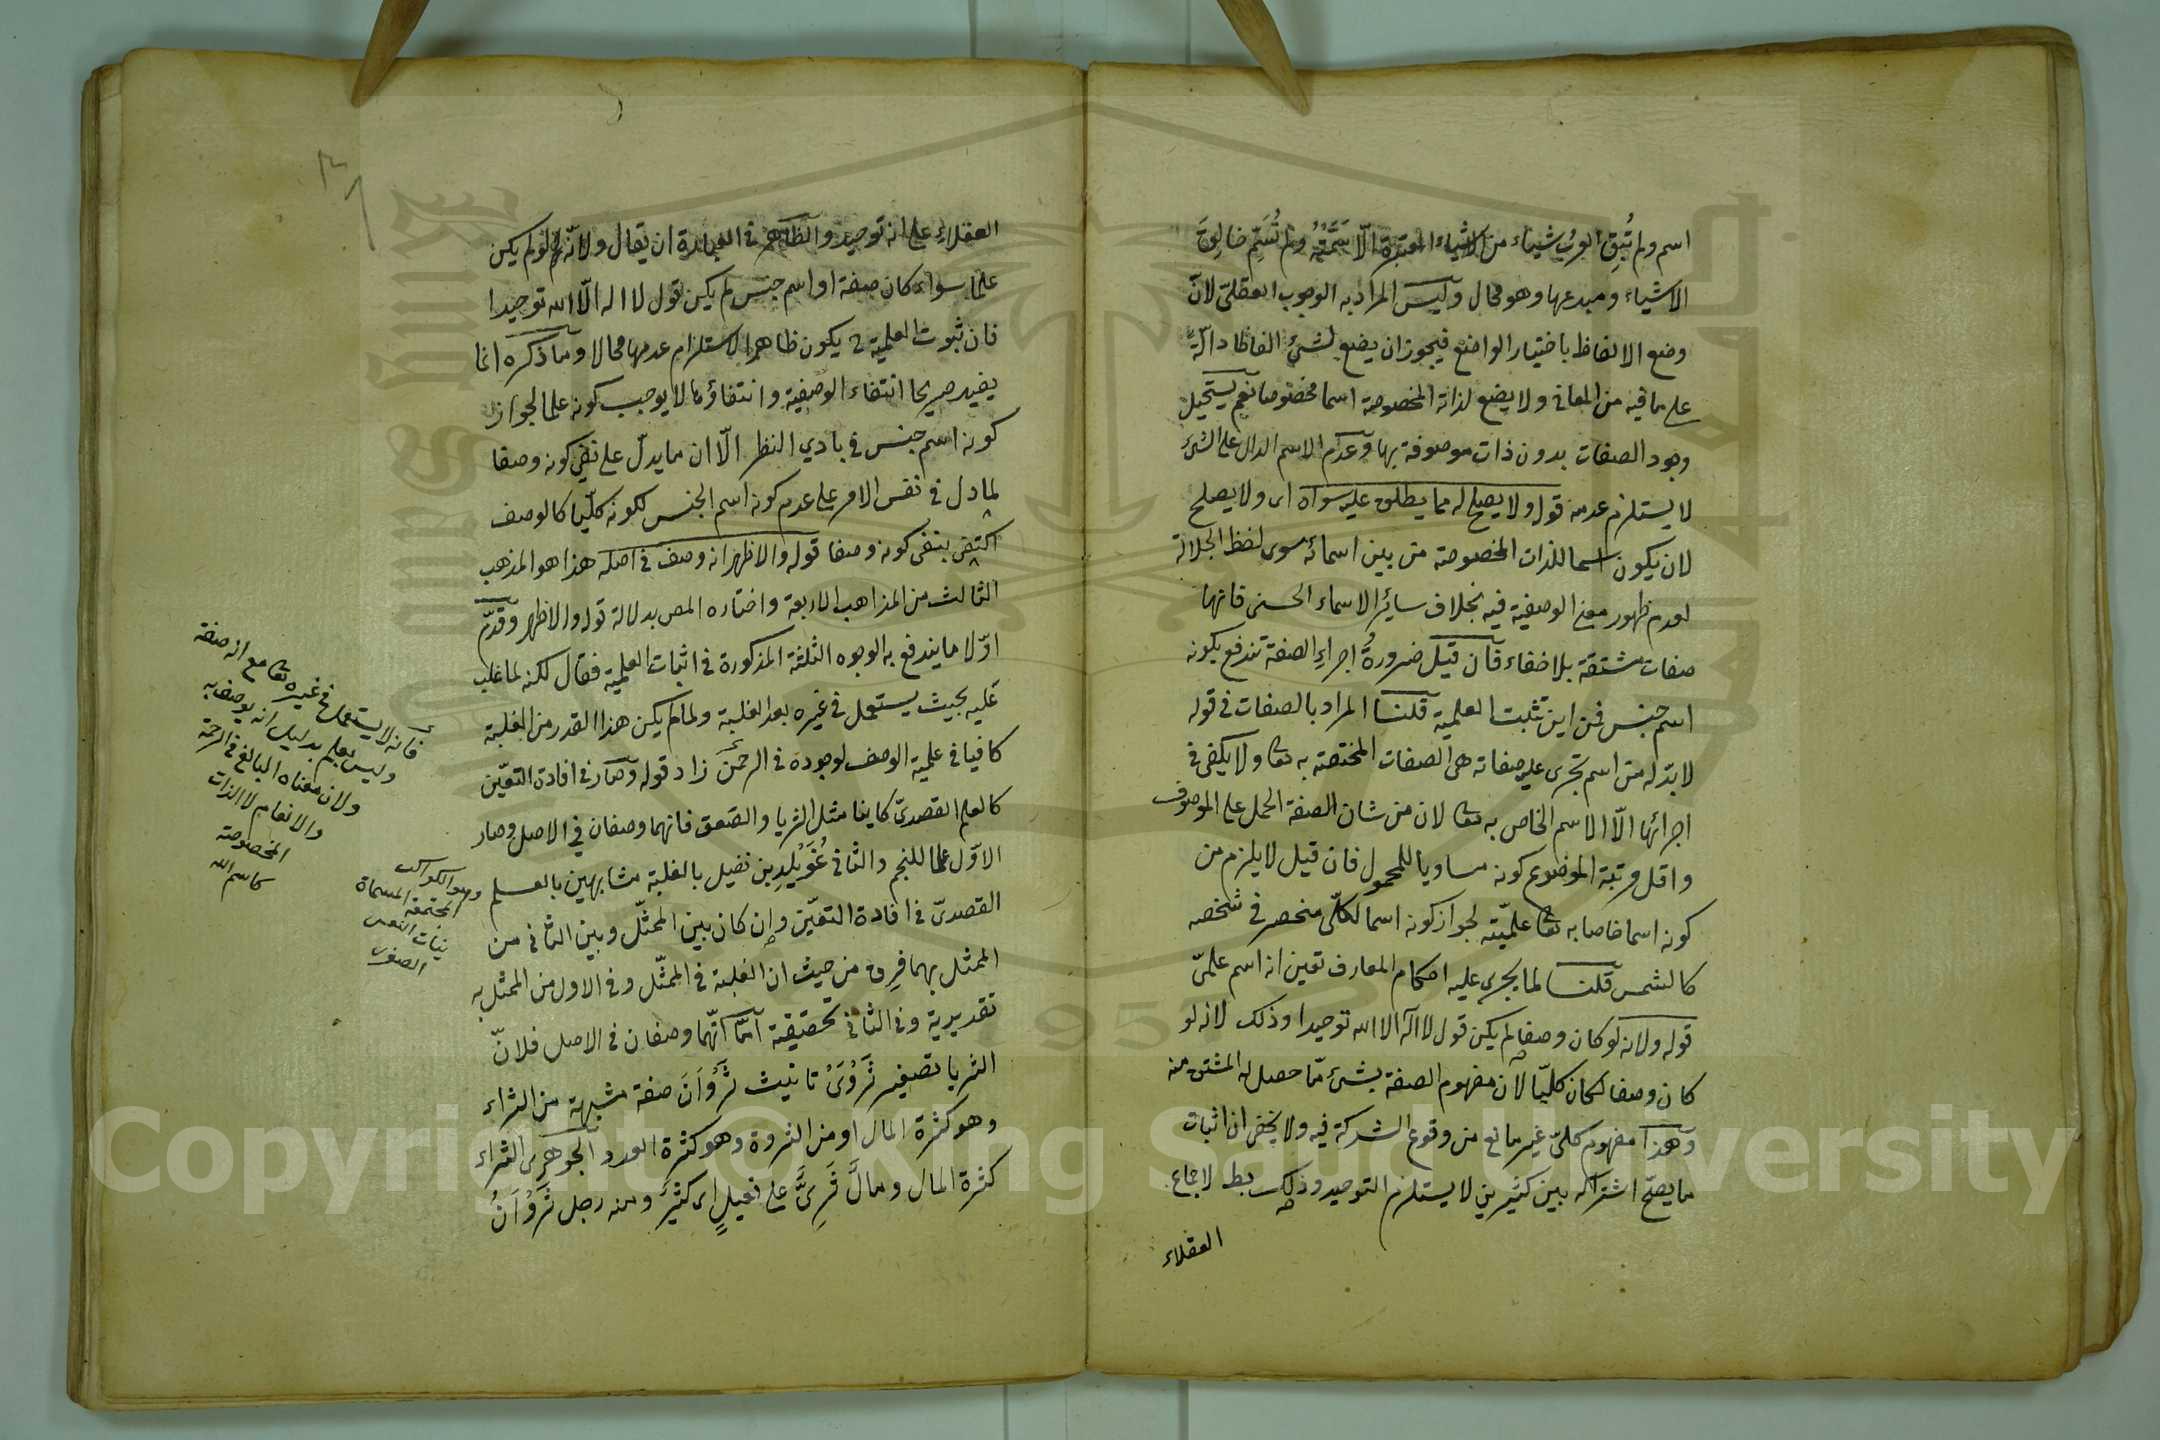 اسم ولم تُبقِ العرب شيئاء من الاشياء المعتبرة الّا سَمَّتْهُ ولم تُسَمِّ خالِقَ
الاشياء ومبدعها وهو محال وليس المراد به الوجوب العقلىّ لانّ
وضع الالفاظ باختيار الواضع فيجوز ان يضع لشئ الفاظا دالّة
على ما فيه من المعانى ولا يضع لذاته المخصوصة اسما مخصوصا نعم يستحيل
وجود الصفات بدون ذات موصوفة بها وعدم الاسم الدال على الشئ
لا يستلزم عدمه قوله ولا يصلح له مما يطلق عليه سواه اى ولا يصلح
لان يكون اسما للذات المخصوصة من بين اسمائه سوى لفظ الجلالة
لعدم ظهور معنى الوصفية فيه بخلاف سائر الاسماء الحسنى فانها
صفات مشتقة بلا خفاء فان قيل ضرورةُ اجراءِ الصفة تندفع بكونه
اسم جنس فمن اين تثبت العلمية قلنا المراد بالصفات فى قوله
لا بدّ له من اسم تجرى عليه صفاته هى الصفات المختصة به تعا ولا يكفى فى
اجرائها الّا الاسم الخاص به تعا لان من شان الصفة الحمل على الموصوف
واقل مرتبة الموضوع كونه مساويا للمحمول فان قيل لا يلزم من
كونه اسما خاصا به تعا علميّته لجواز كونه اسما لكلّى منحصر فى شخصه
كالشمس قلنا لما يجرى عليه احكام المعارف تعين انه اسم علمىّ
قوله ولانه لو كان وصفا لم يكن قول لا اله الا الله توحيدا وذلك لانه لو
كان وصفا لكان كليّا لان مفهوم الصفة بشئ مّا حصل له المشتق منه
وهذا مفهوم كلىّ غير مانع من وقوع الشركة فيه ولا يخفى ان اثبات
ما يصحّ اشتراكه بين كثيرين لا يستلزم التوحيد وذلك بط لاجماع
العقلاء
العقلاء على انه توحيد والظاهر فى العبارة ان يقال ولانّه لو لم يكن
علما سواء كان صفة او اسم جنس لم يكن قول لا اله الّا الله توحيدا
فان ثبوت العلمية ح يكون ظاهرا لاستلزام عدمها محالا وما ذكره انما
يفيد صريحا انتفاء الوصفية وانتفاؤها لا يوجب كونه علما لجواز
كونه اسم جنس فى بادي النظر الّا ان ما يدلّ على نفى كونه وصفا
لما دل فى نفس الامر على عدم كونه اسم الجنس لكونه كلّيا كالوصف
اكتفى بنفى كونه وصفا قوله والاظهر انه وصف فى اصله هذا هو المذهب
الثالث من المذاهب الاربعة واختاره المص بدلالة قوله والاظهر وقدّم
اوّلا ما يندفع به الوجوه الثلثة المذكورة فى اثبات العلمية فقال لكنه لما غلب
عليه بحيث يستعمل فى غيره بعد الغلبة ولما لم يكن هذا القدر من الغلبة
كافيا فى علمية الوصف لوجوده فى الرحمن زاد قوله وصار فى افادة التعيّن
كالعلم القصدىّ كاينا مثل الثريا والصّعق فانهما وصفان فى الاصل وصار
الاوّل علما للنجم والثانى خُوَيْلِدِ بن نفيل بالغلبة مشابهين بالعلم
القصدىّ فى افادة التعيّن وان كان بين الممثّل وبين الثانى من
الممثل بهما فرق من حيث ان الغلبة فى الممثّل وفى الاول من الممثل به
تقديرية وفى الثانى تحقيقية امّا انّهما وصفان فى الاصل فلانّ
الثريا تصغير ثَرْوَىٰ تانيث ثَرْوَانَ صفة مشبهة من الثراء
وهو كثرة المال او من الثروة وهو كثرة العدد الجوهرى الثراء
كثرة المال ومالٌ ثَرِىٌّ على فعيلٍ اى كثيرٌ ومنه رجل ثَرْوَانُ
فانه لا يستعمل فى غيره تعا مع انه صفة
وليس بعلم بدليل انه يوصف به
ولان معناه البالغ فى الرحمة
والانعام لا الذات
المخصوصة
كاسم الله
وهو الكواكب
المجتمعة المسماة
بنات النعش
الصغرى